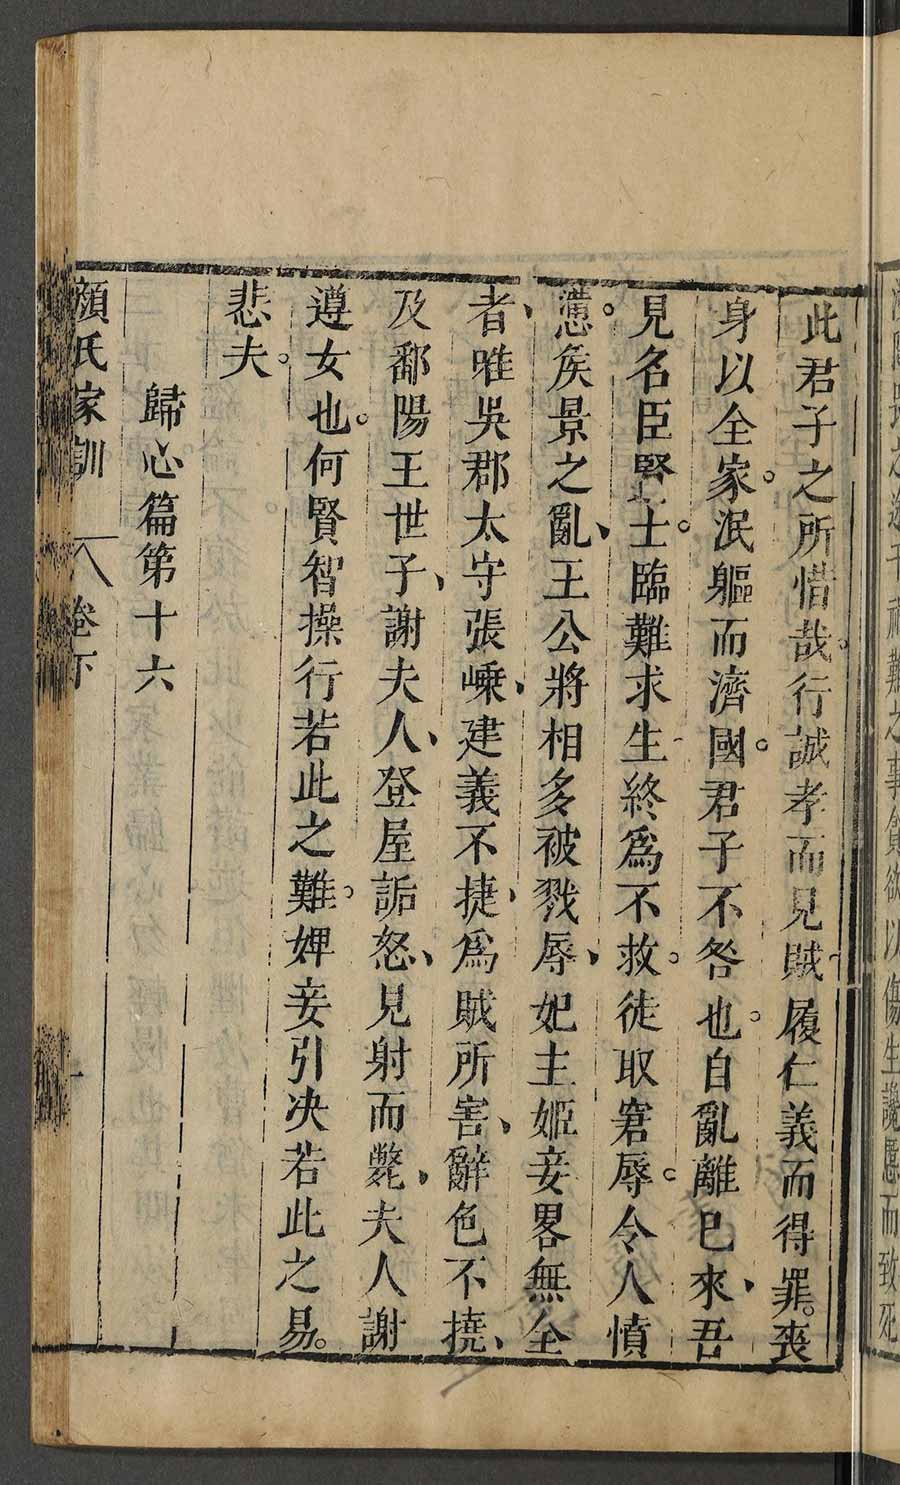 此君子之所惜哉。行誠孝而見賊、履仁義而得罪。喪
身以全家。泯軀而濟國。君子不咎也。自亂離已來、吾
見名臣賢士。臨難求生、終爲不救。徒取窘辱。令人憤
懣。侯景之亂、王公將相多被戮辱、妃主姬妾畧無全
者、唯吳郡太守張嵊、建義不捷、爲賊所害、辭色不撓、
及鄱陽王世子、謝夫人、登屋詬怒、見射而斃、夫人謝
遵女也。何賢智操行若此之難。婢妾引决若此之易。
悲夫。
歸心篇第十六
顏氏家訓 卷下 一